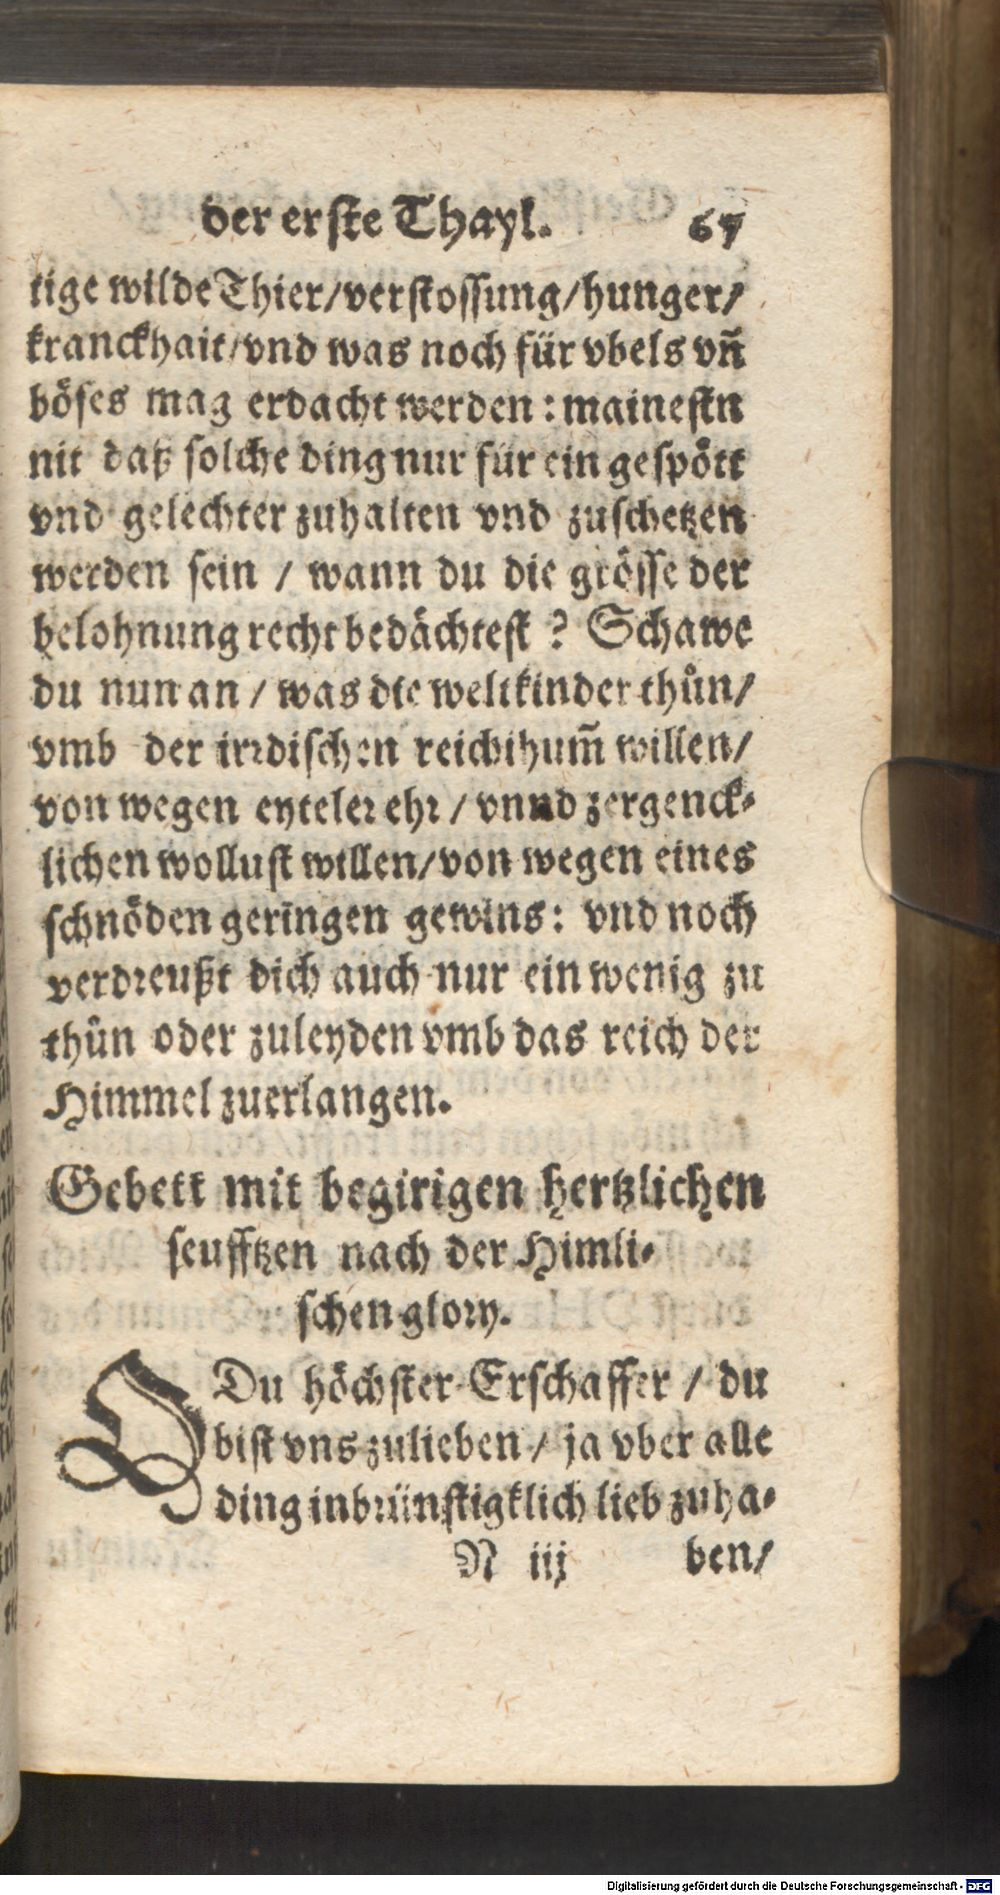 der erste Thayl. 67
tige wilde Thier/verstossung/hunger/
kranckhait/vnd was noch für vbels vñ
böses mag erdacht werden: mainestu
nit daß solche ding nur für ein gespött
vnd gelechter zuhalten vnd zuschetzen
werden sein / wann du die grösse der
belohnung recht bedächtest ? Schawe
du nun an / was die weltkinder thůn/
vmb der irrdischen reichthum̃ willen/
von wegen eyteler ehr / vnnd zergenck⸗
lichen wollust willen/von wegen eines
schnöden geringen gewins: vnd noch
verdreußt dich auch nur ein wenig zu
thůn oder zuleyden vmb das reich der
Himmel zuerlangen.
Gebett mit begirigen hertzlichen
seufftzen nach der Himli⸗
schen glory.
O Du höchster Erschaffer / du
bist vns zulieben / ja vber alle
ding inbrünstigklich lieb zuha⸗
N iij ben/
Digitalisierung gefördert durch die Deutsche Forschungsgemeinschaft - DFG